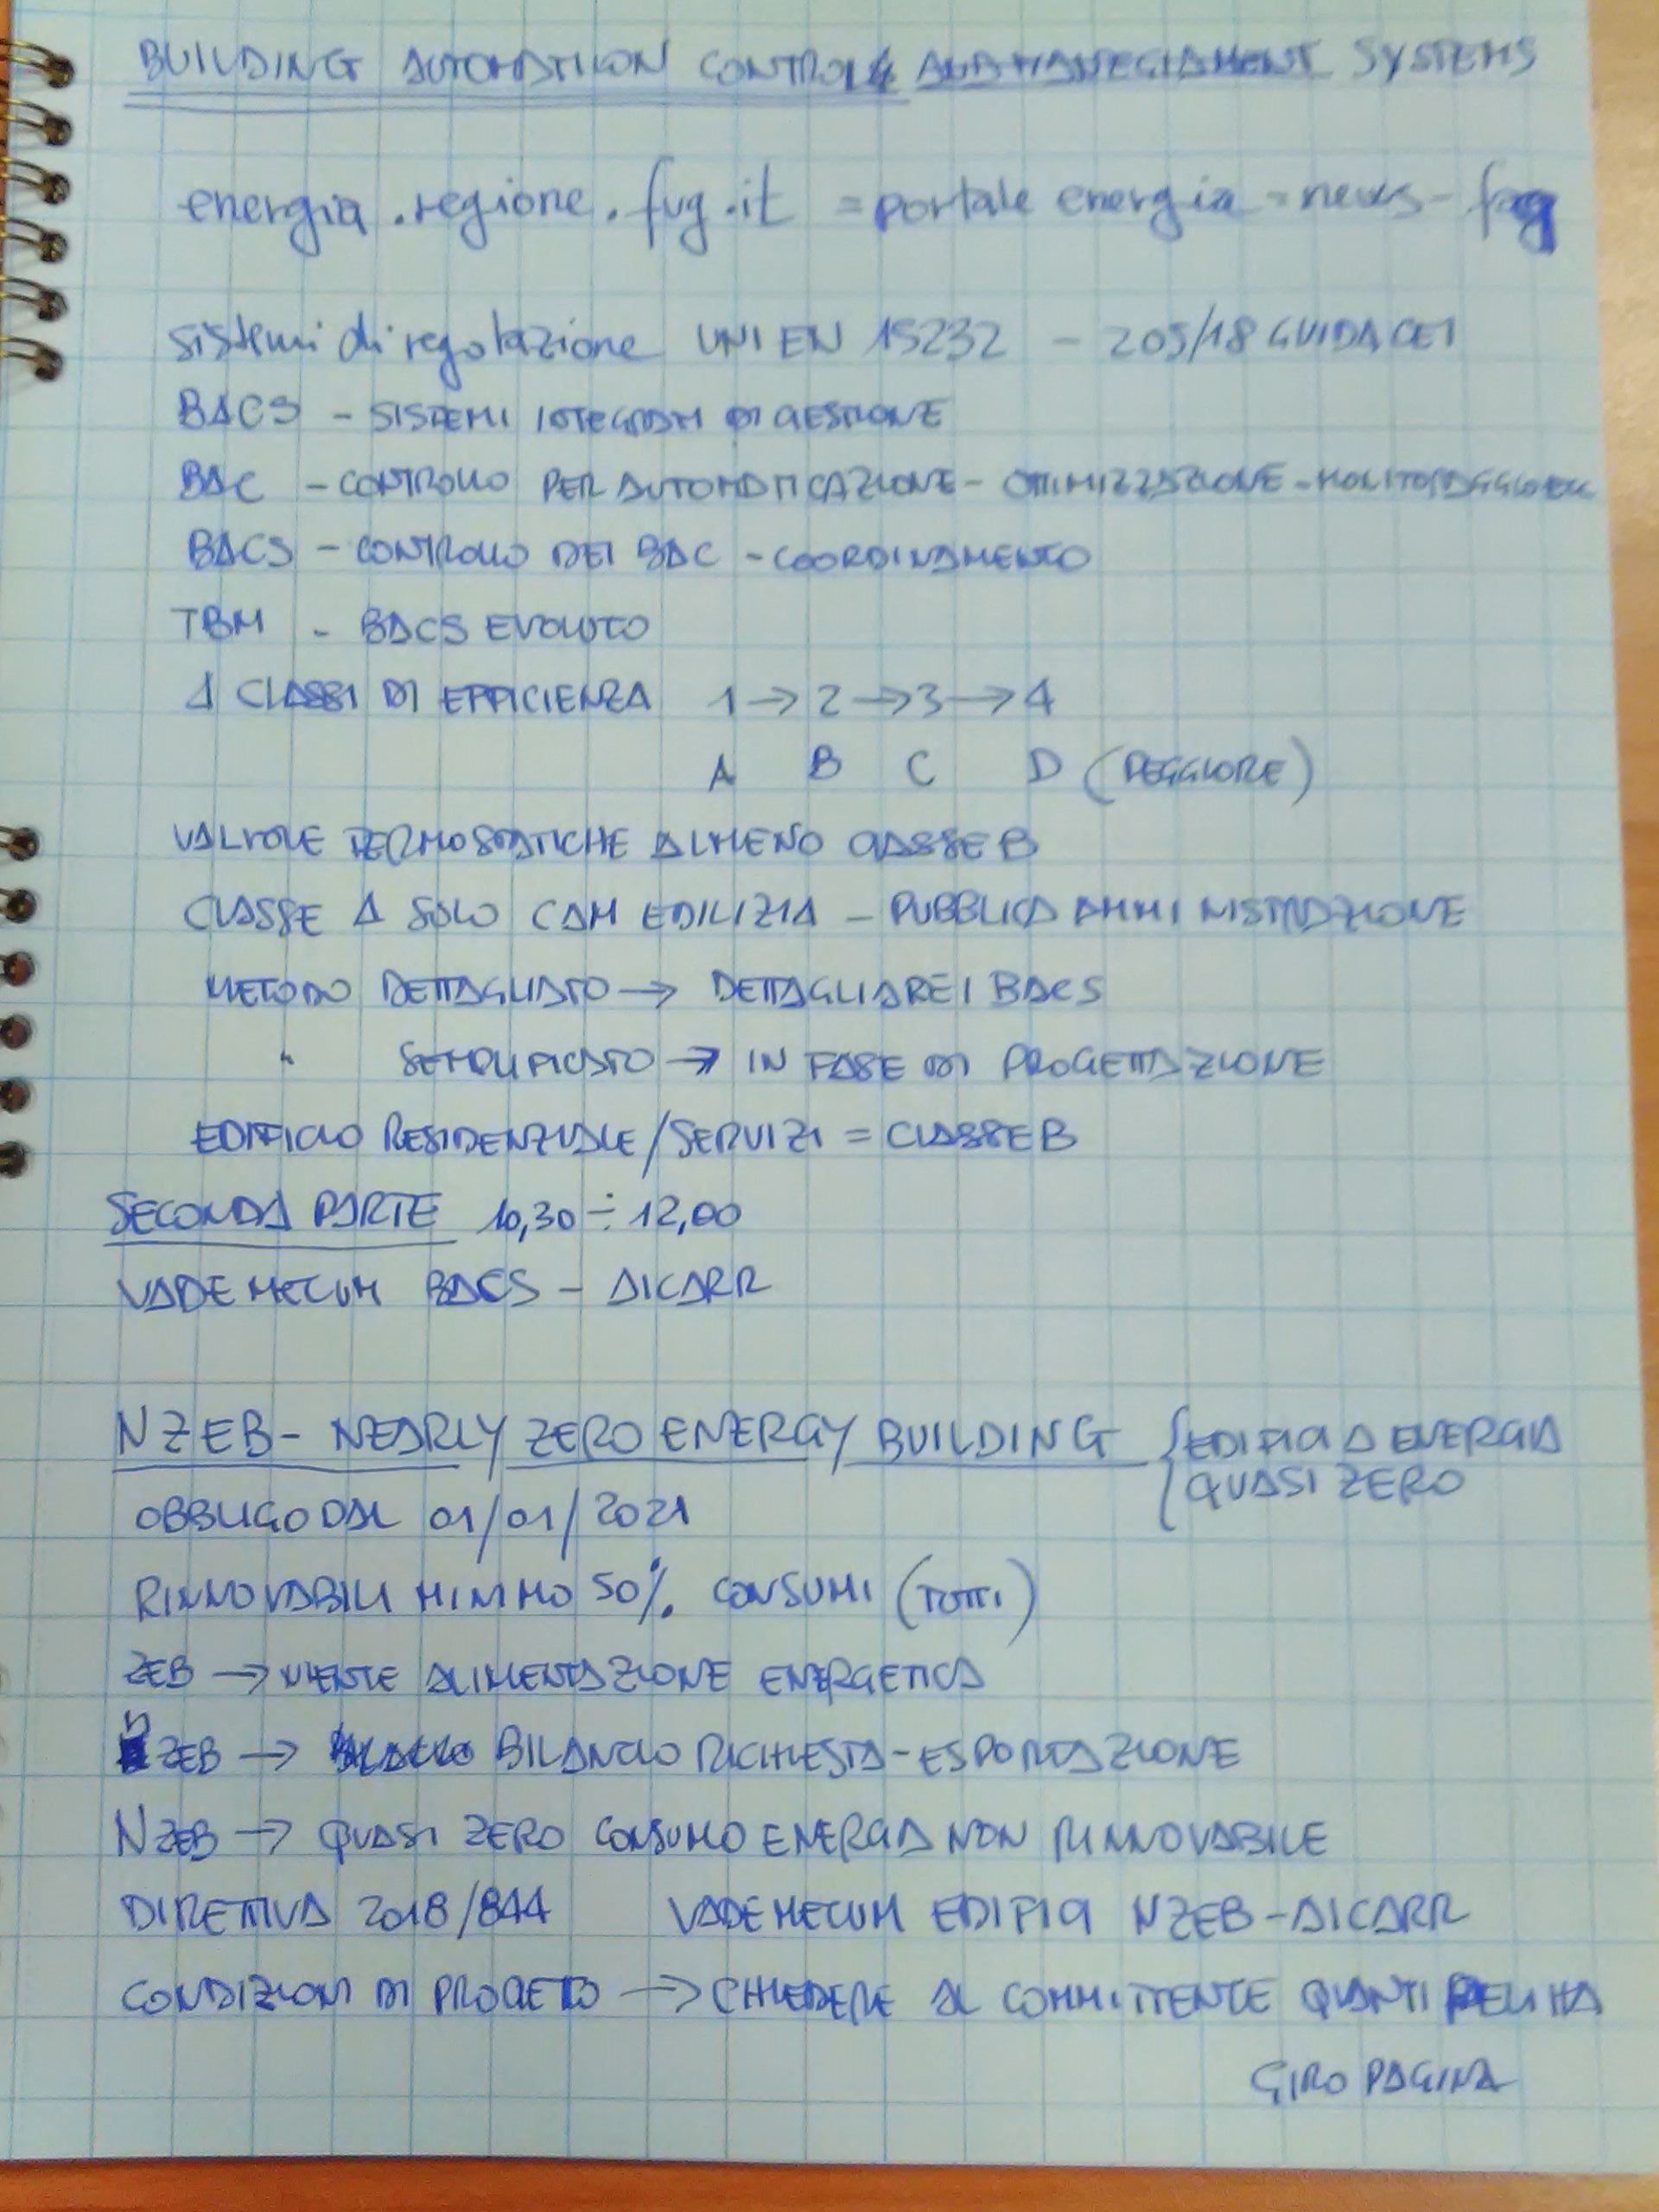 BUILDING AUTOMATION CONTROL & MANAGEMENT SYSTEMS
energia.regione.fvg.it = portale energia - news -
sistemi di regolazione UNI EN 15232 - 205/18 GUIDA CEI
BACS - SISTEMI INTEGRATI DI GESTIONE
BAC - CONTROLLO PER AUTOMATICAZIONE - OTTIMIZZAZIONE - MONITORAGGIO
BACS - CONTROLLO DEI BAC - COORDINAMENTO
TBM - BACS EVOLUTO
4 CLASSI DI EFFICIENZA 1 → 2 → 3 → 4
A B C D (PEGGIORE)
VALVOLE TERMOSTATICHE ALMENO CLASSE B
CLASSE A SOLO CAM EDILIZIA - PUBBLICA AMMINISTRAZIONE
METODO DETTAGLIATO → DETTAGLIARE I BACS
" SEMPLIFICATO → IN FASE DI PROGETTAZIONE
EDIFICIO RESIDENZIALE/SERVIZI = CLASSE B
SECONDA PARTE 10,30 ÷ 12,00
VADEMECUM BACS - AICARR
NZEB - NEARLY ZERO ENERGY BUILDING { EDIFICI A ENERGIA
QUASI ZERO
OBBLIGO DAL 01/01/2021
RINNOVABILI MINIMO 50% CONSUMI (TUTTI)
ZEB → NIENTE ALIMENTAZIONE ENERGETICA
nZEB → BILANCIO RICHIESTA - ESPORTAZIONE
NZEB → QUASI ZERO CONSUMO ENERGIA NON RINNOVABILE
DIRETTIVA 2018/844 VADEMECUM EDIFICI NZEB - AICARR
CONDIZIONI DI PROGETTO → CHIEDERE AL COMMITTENTE QUANTI HA
GIRO PAGINA